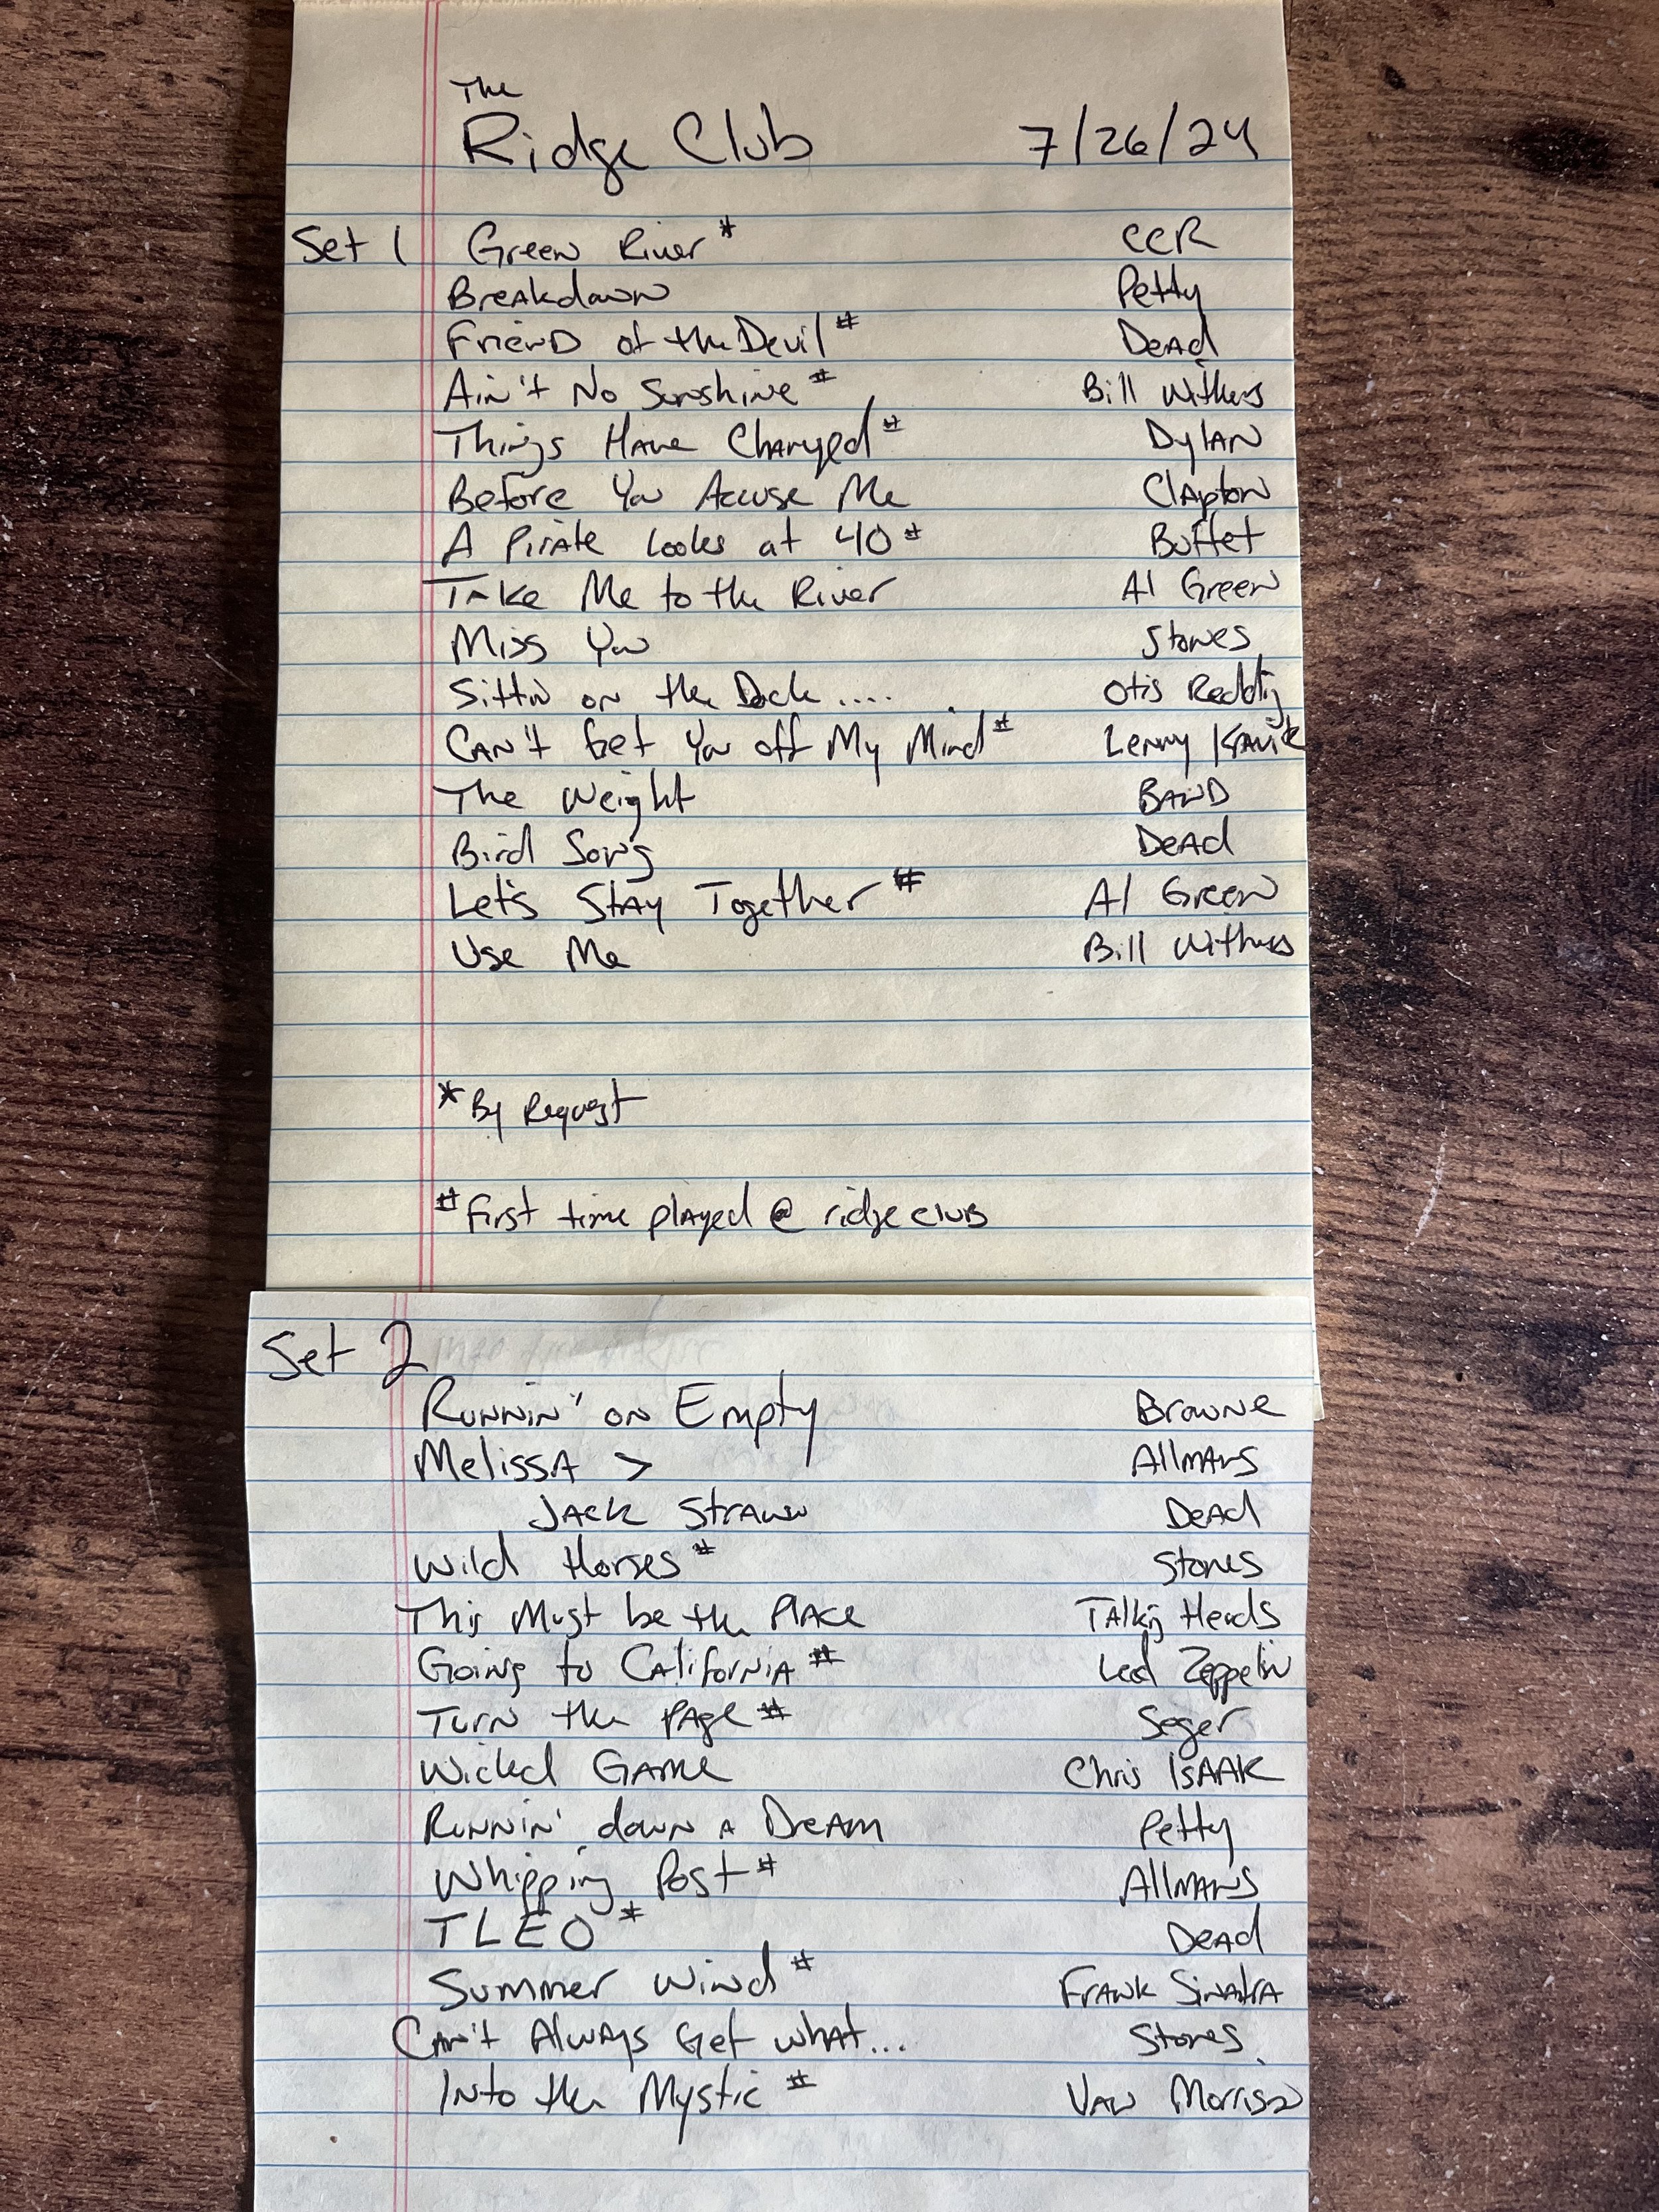 The
Ridge Club 7/26/24
Set 1 Green River* CCR
Breakdown Petty
Friend of the Devil# Dead
Ain't No Sunshine# Bill Withers
Things Have Changed# Dylan
Before You Accuse Me Clapton
A Pirate Looks at 40# Buffet
Take Me to the River Al Green
Miss You Stones
Sittin on the Dock .... Otis Redding
Can't Get You off My Mind# Lenny Kravitz
The Weight Band
Bird Song Dead
Let's Stay Together# Al Green
Use Me Bill Withers
*By Request
#First time played @ ridge club
Set 2
Runnin' on Empty Browne
Melissa > Allmans
Jack Straw Dead
Wild Horses# Stones
This Must be the Place Talking Heads
Going to California# Led Zeppelin
Turn the Page# Seger
Wicked Game Chris Isaak
Runnin' down a Dream Petty
Whipping Post# Allmans
TLEO# Dead
Summer Wind# Frank Sinatra
Can't Always Get what... Stones
Into the Mystic# Van Morrison